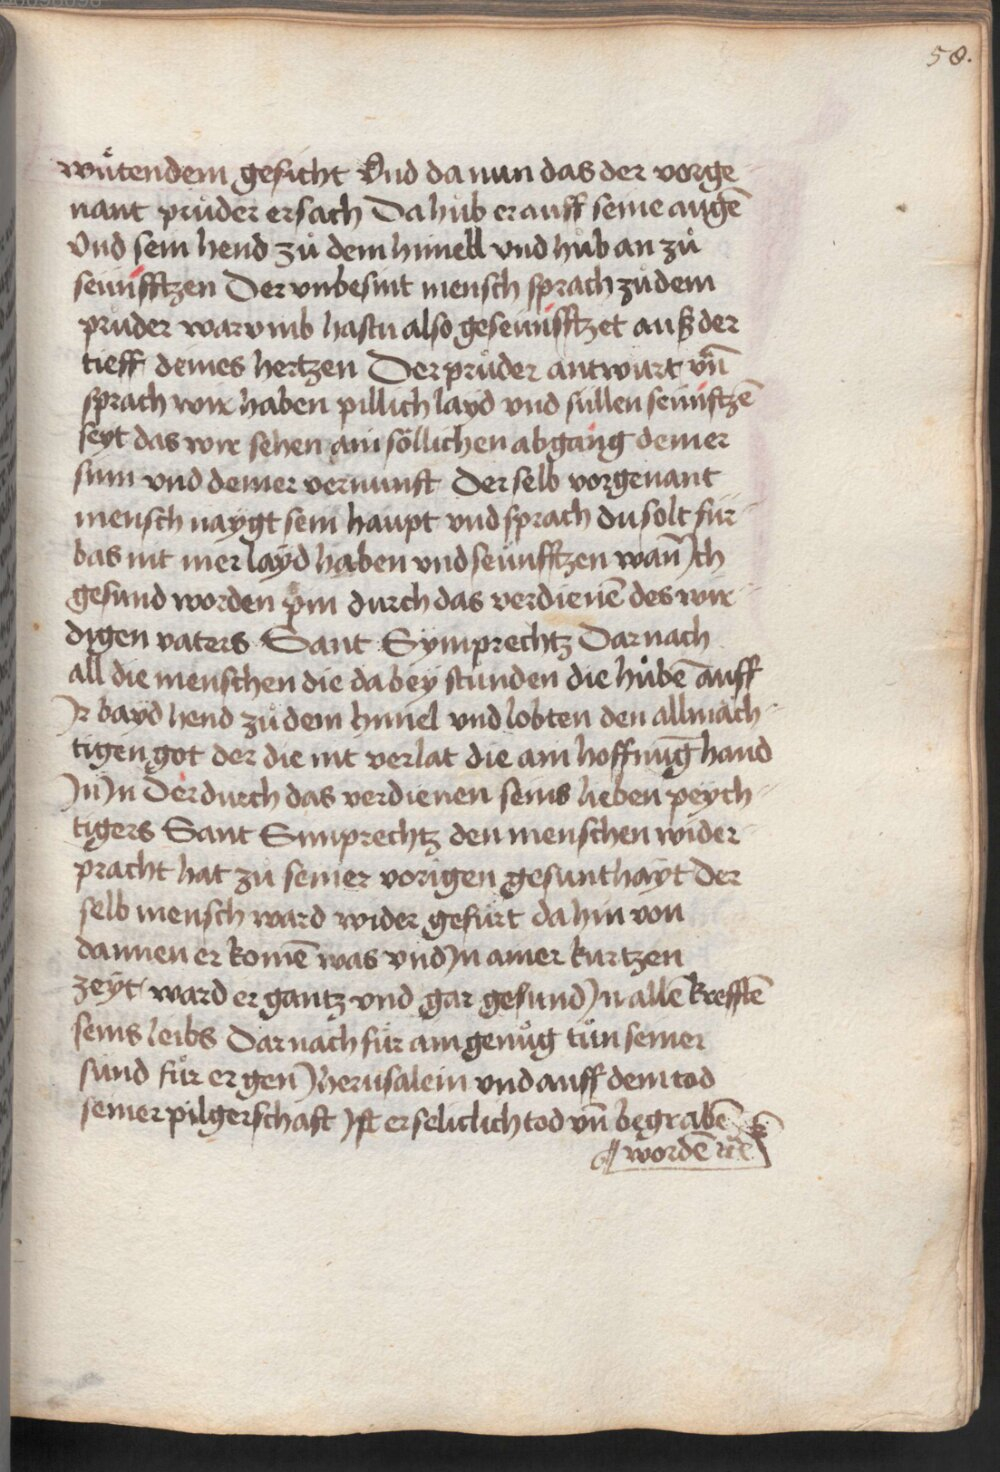 58.
wuͤtendem gesicht Vnd da nun das der vorge
nant pruͦder ersach Da huͦb er auff seine augē
Vnd sein hend zuͦ dem himell vnd huͦb an zuͦ
seuͤfftzen Der vnbesint mensch sprach zuͦ dem
pruͦder warvmb hastu also geseuͤfftzet auß der
tieff deines hertzen Der pruͦder antwurt vn̄
sprach wir haben pillich layd vnd sullen seuͤftzē
seyt das wir sehen ain söllichen abgang deiner
sinn vnd deiner vernunft Der selb vorgenant
mensch naygt sein haupt vnd sprach du solt für
bas nit mer laÿd haben vnd seüfftzen wan̄ Ich
gesund worden pin durch das verdienē des wir
digen vaters Sant Sÿmprechtz Dar nach
all die menschen die da beÿ stunden die huͦbē auff
Ir baÿd hend zuͦ dem himel vnd lobten den allmäch
tigen got der die nit verlat die ain hoffnūg hand
In In Der durch das verdienen seins lieben peych
tigers Sant Simprechtz den menschen wider
pracht hat zuͦ seiner vorigen gesunthaÿt Der
selb mensch ward wider gefürt da hin von
dannen er komē was vnd In ainer kurtzen
zeÿt ward er gantz vnd gar gesund In allē krefftē
seins leibs Dar nach für ain genuͦg tuͦn seiner
sünd fuͦr er gen Jherusalem vnd auff dem tod
seiner pilgerschaft Ist er seliclich tod vn̄ begrabē
wordē